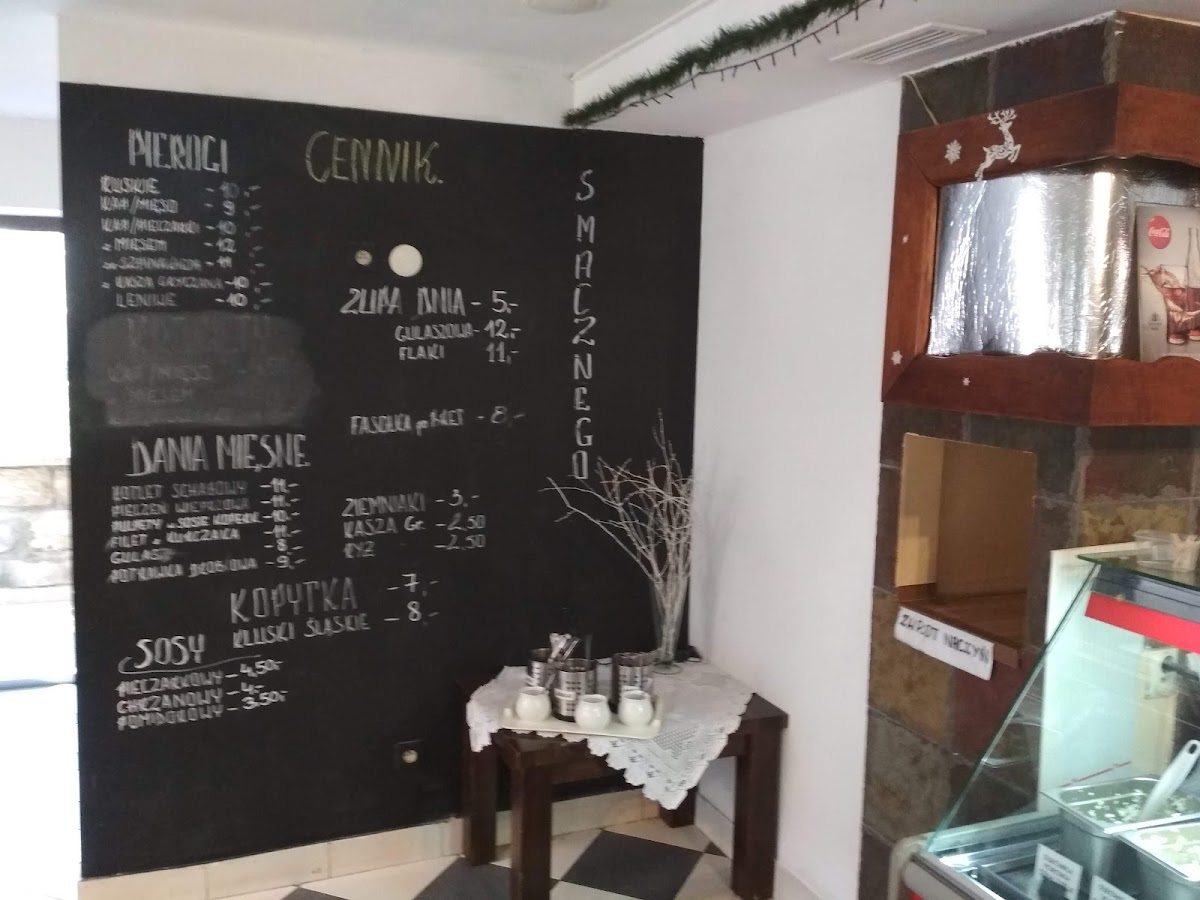 CENNIK.
PIEROGI
RUSKIE - 10,-
KAP/MIĘSO - 9,-
KAP/PIECZARKI - 10,-
z MIĘSEM - 12,-
ze SZPINAKIEM - 11,-
z KASZĄ GRYCZANĄ - 10,-
LENIWE - 10,-
KAP/MIĘSO
MIĘSEM
DANIA MIĘSNE.
KOTLET SCHABOWY - 11,-
PIECZEŃ WIEPRZOWA - 11,-
PULPETY w SOSIE KOPERK. - 10,-
FILET z KURCZAKA - 11,-
GULASZ - 8,-
POTRAWKA DROBIOWA - 9,-
KOPYTKA - 7,-
KLUSKI ŚLĄSKIE - 8,-
SOSY
PIECZARKOWY - 4,50,-
CHRZANOWY - 4,-
POMIDOROWY - 3,50,-
ZUPA DNIA - 5,-
GULASZOWA - 12,-
FLAKI 11,-
FASOLKA po BRET - 8,-
ZIEMNIAKI - 3,-
KASZA Gr. - 2,50
RYŻ - 2,50
SMACZNEGO
Coca-Cola
ZWROT NACZYŃ